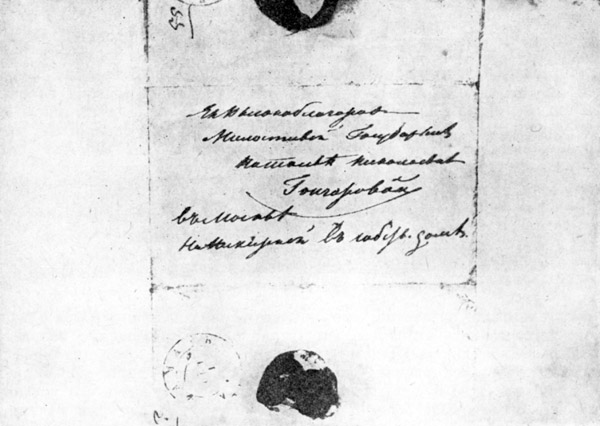 Ея Высокоблагород
Милостивой Государынѣ
Натальѣ Николаевнѣ
Гончаровой
въ Москвѣ
На Никитской въ собств. домѣ.